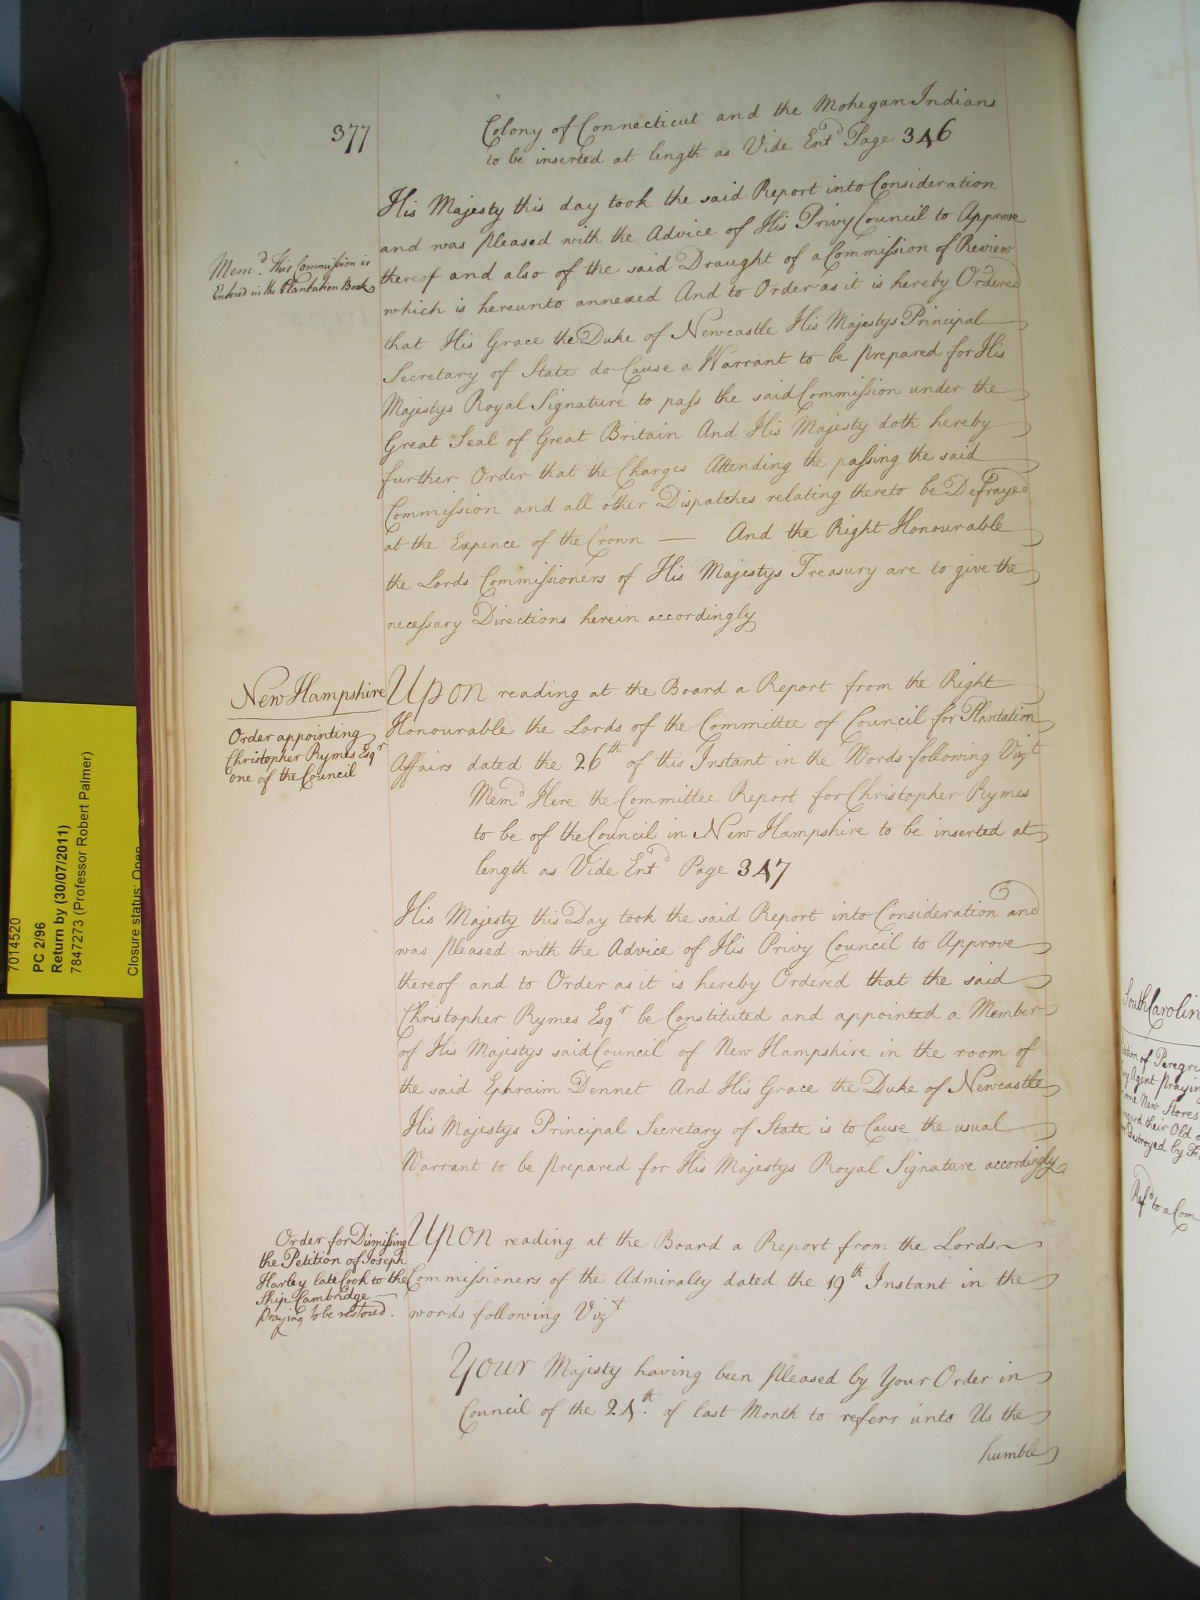 377
Colony of Connecticut and the Mohegan Indians
to be inserted at length as Vide Entd Page 346
His Majesty this day took the said Report into Consideration
and was pleased with the Advice of His Privy Council to Approve
Memd. This Commission is
Entered in the Plantation Book
thereof and also of the said Draught of a Commission of Review
which is hereunto annexed And to Order as it is hereby Ordered
that His Grace the Duke of Newcastle His Majestys Principal
Secretary of State do Cause a Warrant to be prepared for His
Majestys Royal Signature to pass the said Commission under the
Great Seal of Great Britain And His Majesty doth hereby
further Order that the Charges Attending the passing the said
Commission and all other Dispatches relating thereto be Defrayed
at the Expence of the Crown — And the Right Honourable
the Lords Commissioners of His Majestys Treasury are to give the
necessary Directions herein accordingly
New Hampshire
Order appointing
Christopher Rymes Esqr
one of the Council
Upon reading at the Board a Report from the Right
Honourable the Lords of the Committee of Council for Plantation
Affairs dated the 26th of this Instant in the Words following Vizt
Memd Here the Committee Report for Christopher Rymes
to be of the Council in New Hampshire to be inserted at
length as Vide Entd Page 347
His Majesty this Day took the said Report into Consideration and
was pleased with the Advice of His Privy Council to Approve
thereof and to Order as it is hereby Ordered that the said
Christopher Rymes Esqr be Constituted and appointed a Member
of His Majestys said Council of New Hampshire in the room of
the said Ephraim Dennet And His Grace the Duke of Newcastle
His Majestys Principal Secretary of State is to Cause the usual
Warrant to be prepared for His Majestys Royal Signature accordingly
Order for Dismissing
the Petition of Joseph
Harley late Cook to the
Ship Cambridge —
Praying to be restored.
Upon reading at the Board a Report from the Lords
Commissioners of the Admiralty dated the 19th Instant in the
words following Vizt
Your Majesty having been pleased by Your Order in
Council of the 24th. of last Month to referr unto Us the
humble
7014520
PC 2/96
Return by (30/07/2011)
7847273 (Professor Robert Palmer)
Closure status: Open
South Carolin
of Peregri
Agent Praying
New Stores
their Old
destroyed by
Refd to a Com